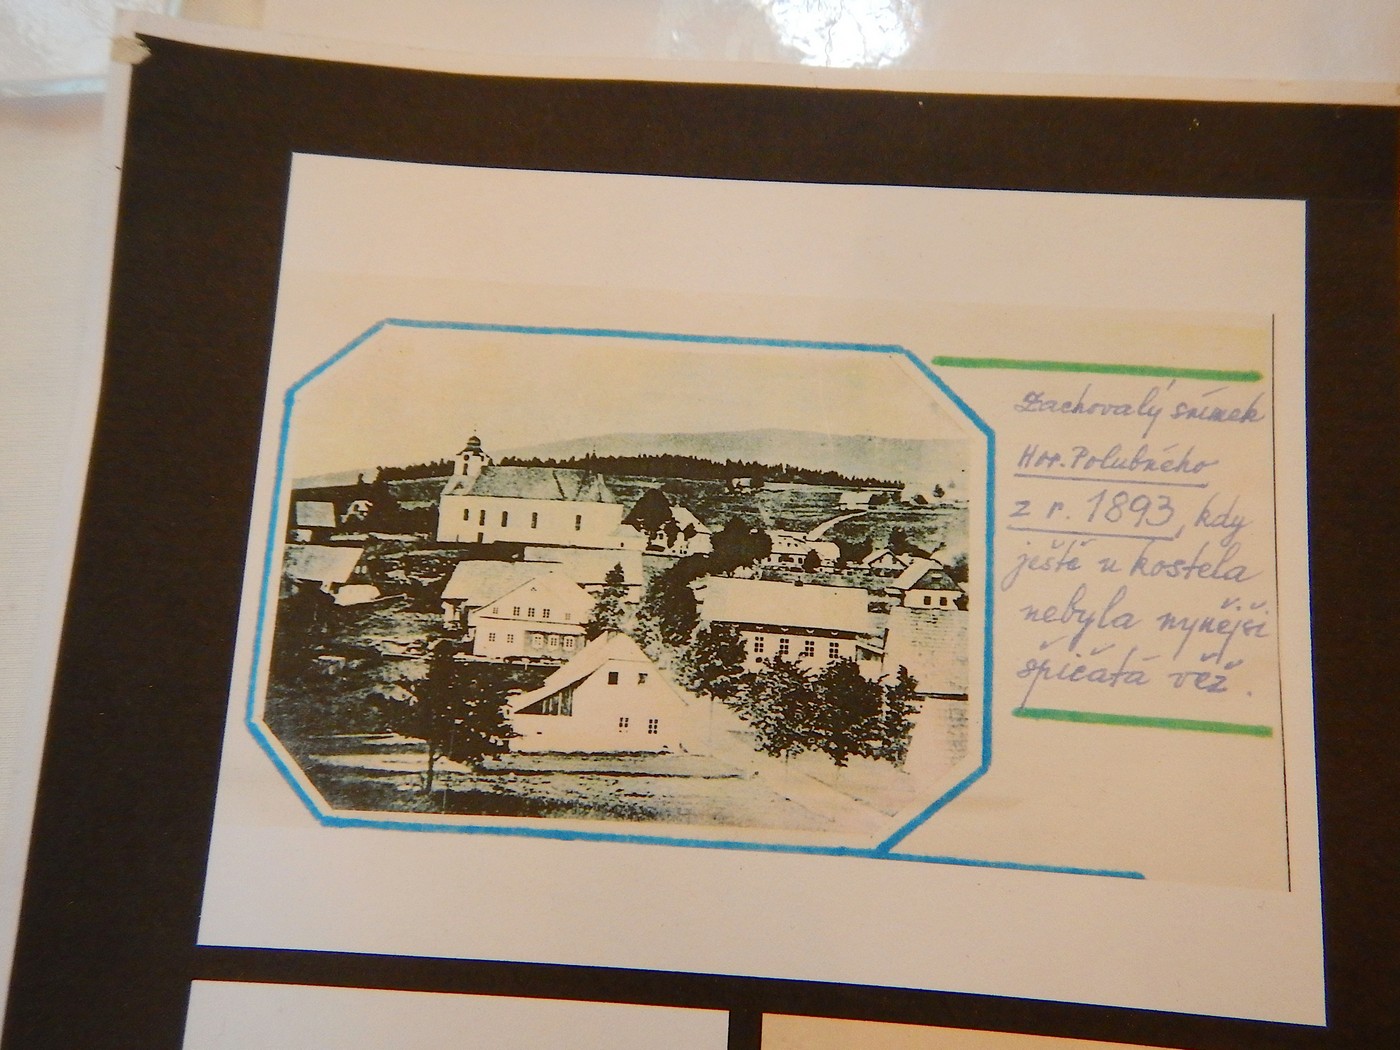 Zachovalý snímek
Hor. Polubného
z r. 1893, kdy
ještě u kostela
nebyla nynější
špičatá věž.